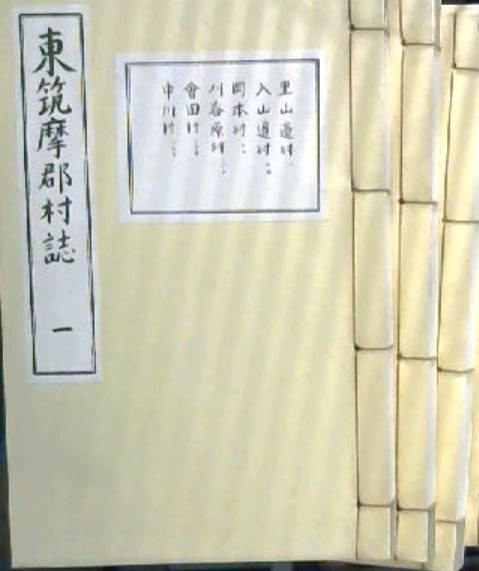 東筑摩郡村誌 一
里山邉村
入山邉村
岡本村
刈谷原村
會田村
中川村